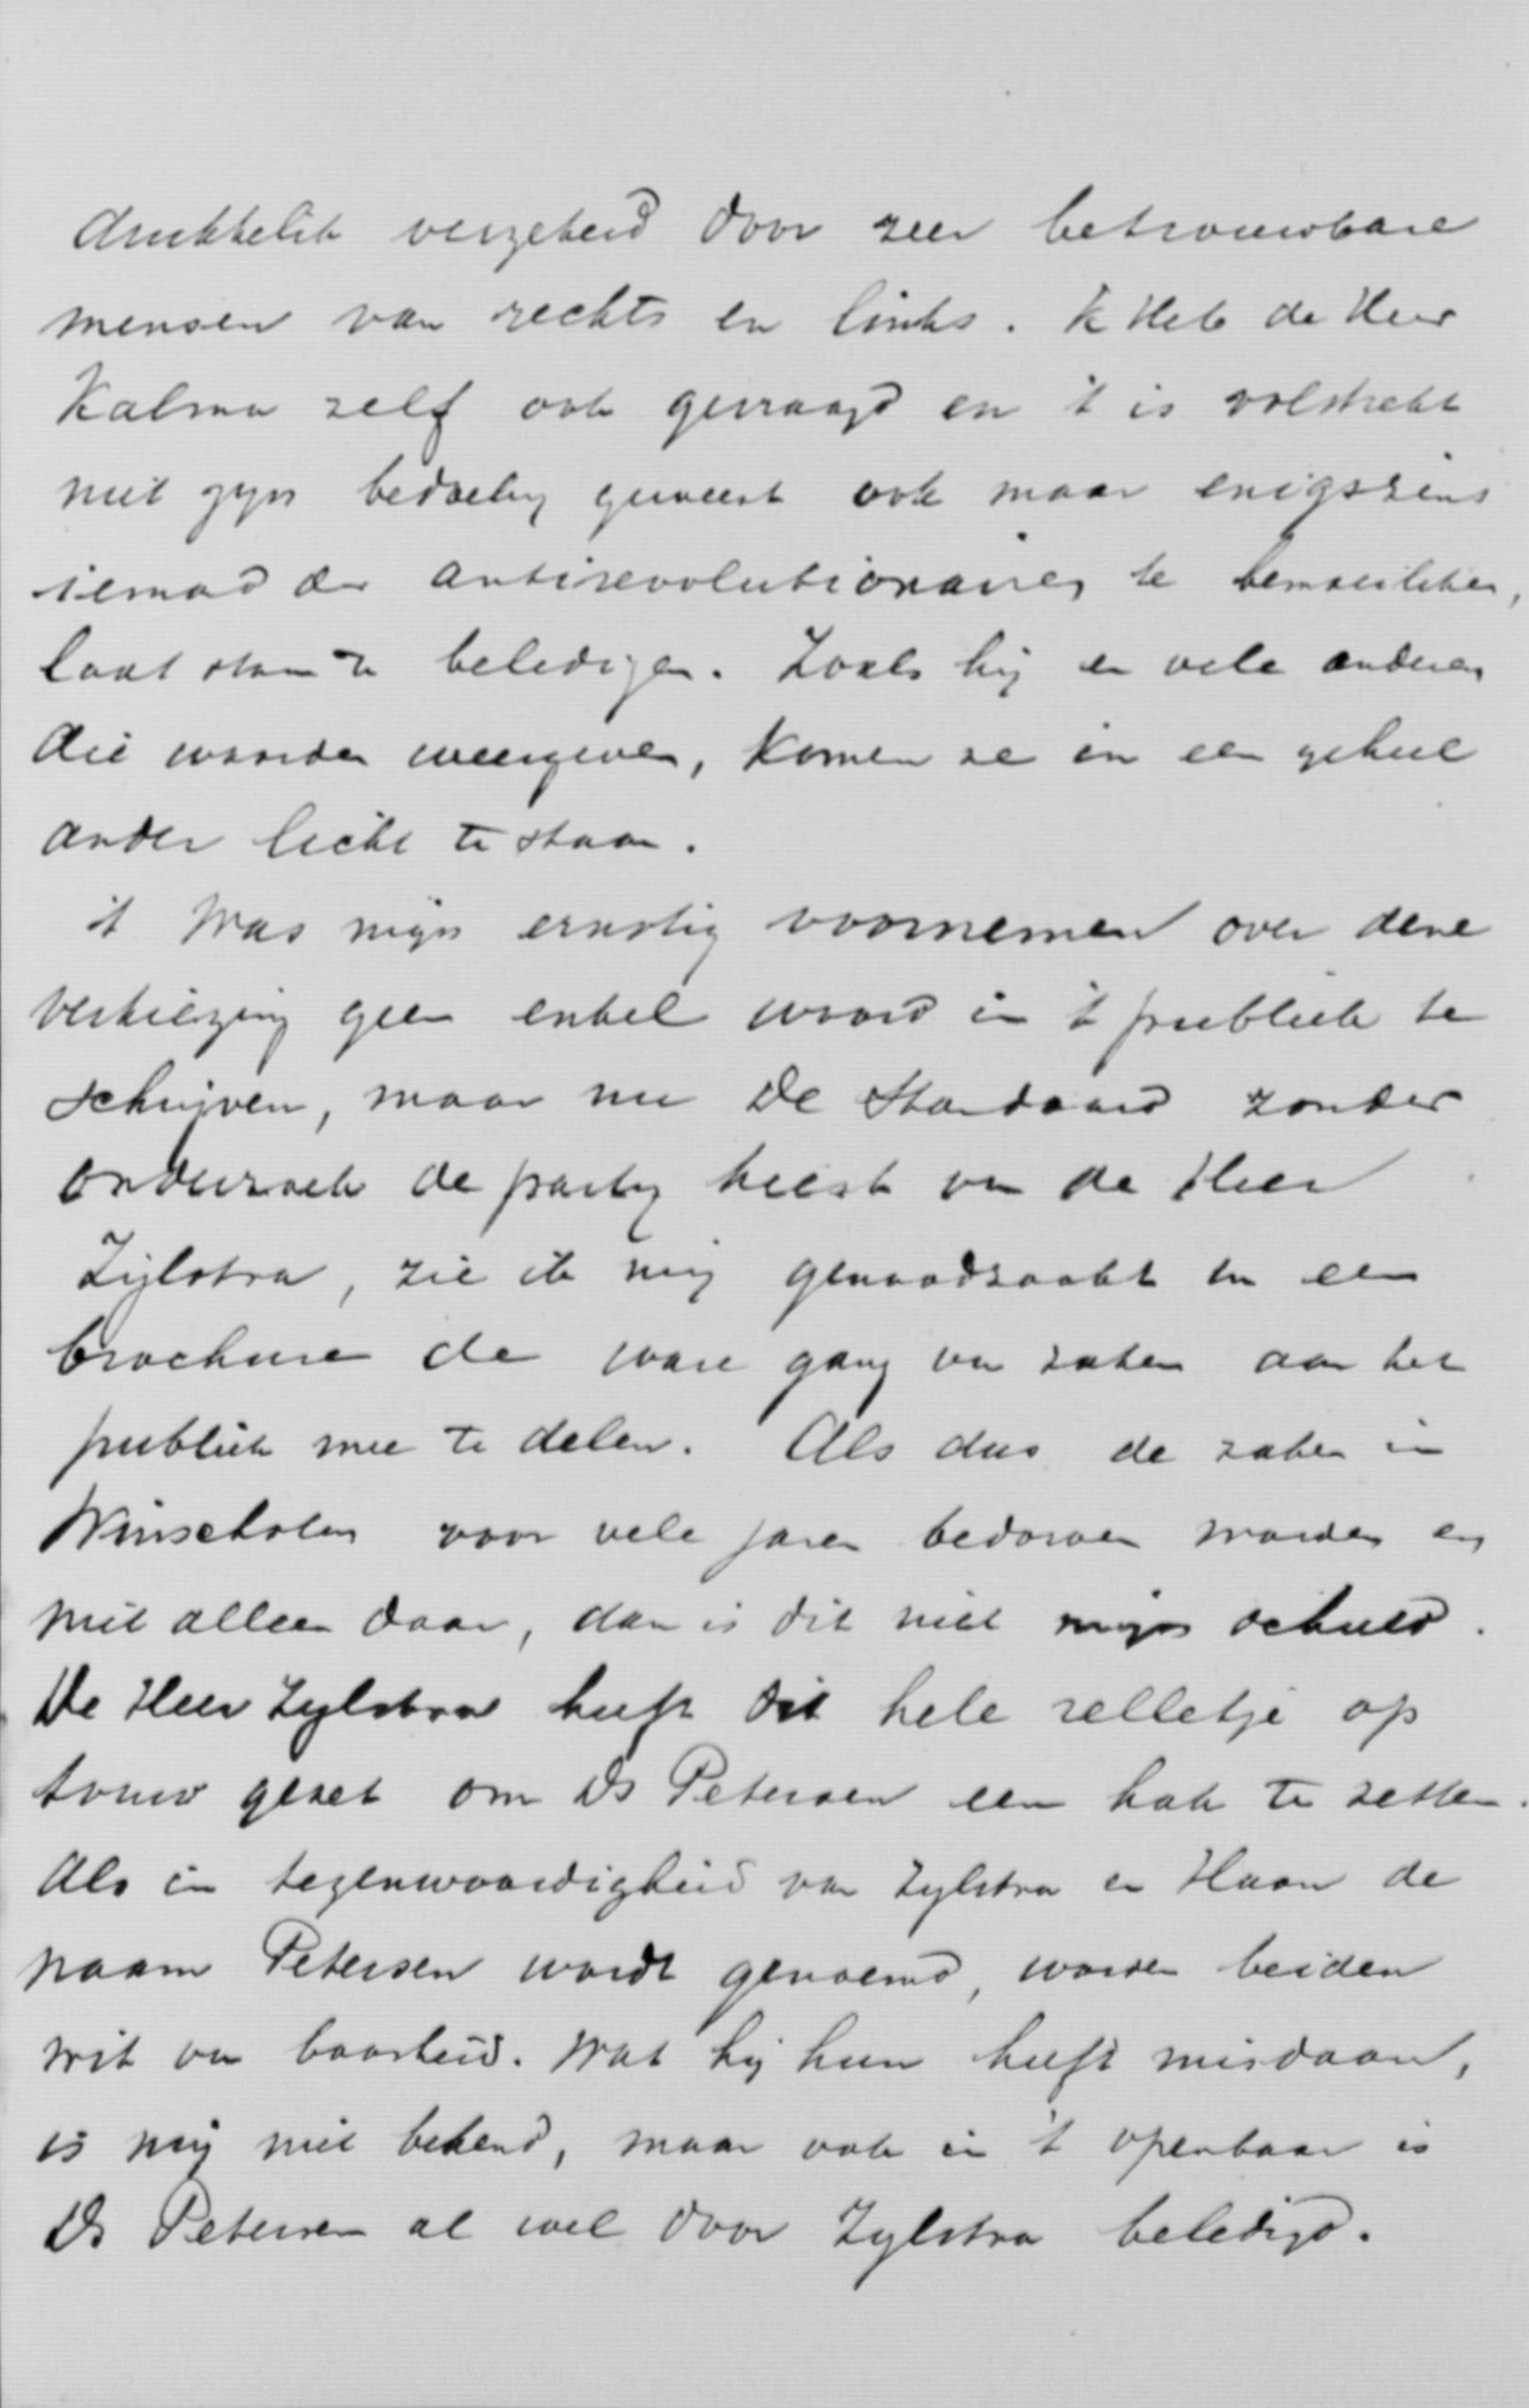 drukkelik verzekerd door zeer betrouwbare
mensen van rechts en links. Ik Heb de Heer
Kalma zelf ook gevraagd en 't is volstrekt
niet zyn bedoeling geweest ook maar enigszins
iemand der antirevolutionaires te bemoeiliken,
laat staan te beledigen. Zoals hij en vele anderen
die woorden weergeven, komen ze in een geheel
ander licht te staan.
't Was mijn ernstig voornemen over deze
verkiezing geen enkel woord in 't publiek te
schrijven, maar nu De Standaard zonder
onderzoek de partij kiest van de Heer
Zijlstra, zie ik mij genoodzaakt in een
brochure de ware gang van zaken aan het
publiek mee te delen. Als dus de zaken in
Winschoten voor vele jaren bedorven worden en
niet alleen daar, dan is dit niet mijn schuld.
De Heer Zylstra heeft dit hele relletje op
touw gezet om Ds Petersen een hak te zetten.
Als in tegenwoordigheid van Zylstra en Haan de
naam Petersen wordt genoemd, worden beiden
wit van boosheid. Wat hij hun heeft misdaan,
is mij niet bekend, maar ook in 't openbaar is
Ds Petersen al wel door Zylstra beledigd.